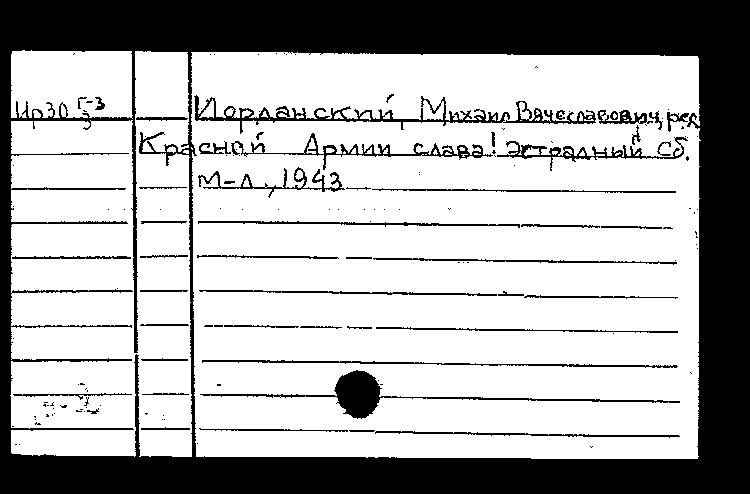 Ир30 Г-3/3 Иорданский, Михаил Вячеславович, ред.
Красной Армии слава! Эстрадный сб.
М-Л., 1943